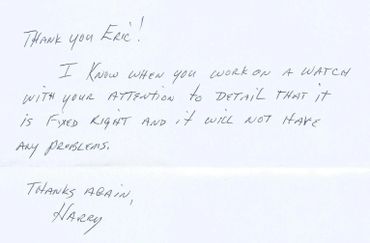 THANK YOU ERIC!
I KNOW WHEN YOU WORK ON A WATCH
WITH YOUR ATTENTION TO DETAIL THAT IT
IS FIXED RIGHT AND IT WILL NOT HAVE
ANY PROBLEMS.
THANKS AGAIN,
HARRY